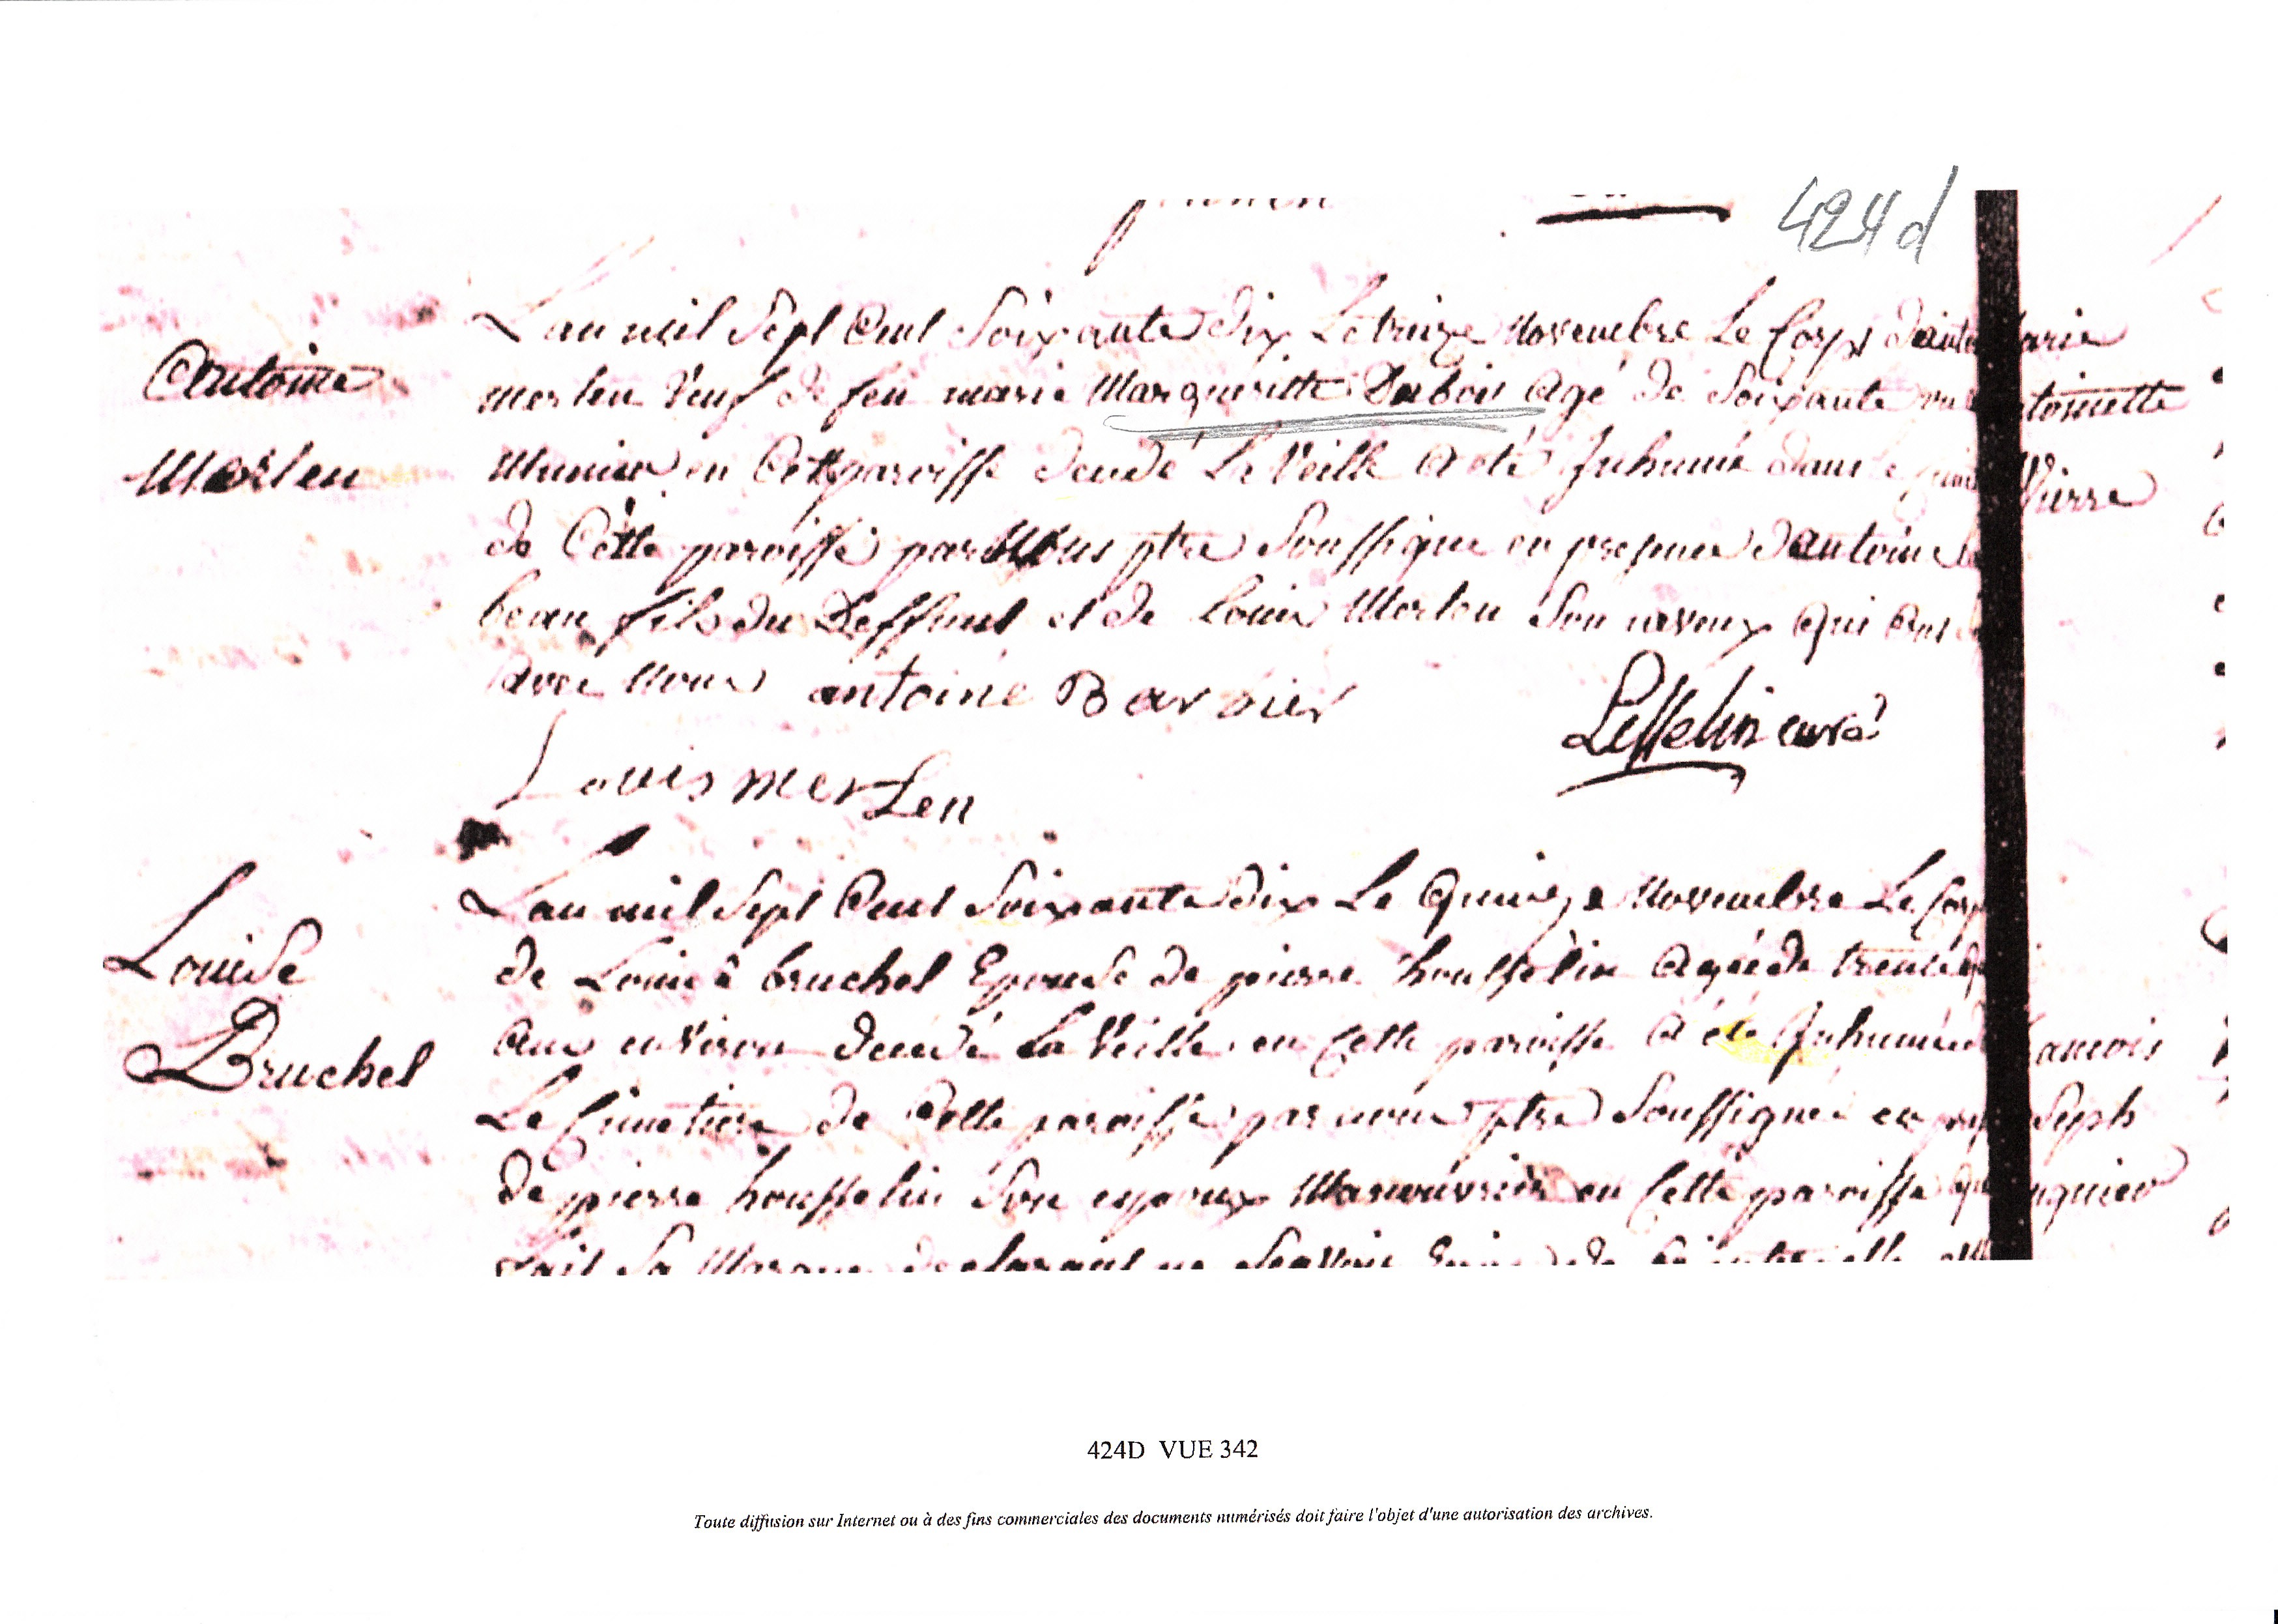 424d
Antoine
Merlen
L'an mil Sept Cent Soixante dix Le treize Novembre Le Corps
merlen Veuf de feu marie Margueritte Dubois Agé de Soixante
Munier en Cette paroisse decedé La Veille A eté Inhumé dans
de Cette paroisse par Nous ptre Soussigné en presence d'antoine
beau fils du Deffunt et de Louis Merlen Son neveux Qui ont
avec Nous antoine Barbier
Lesselin curé
Louis merLen
Louise
Bruchel
L'an mil Sept Cent Soixante dix Le Quinze Novembre Le Corps
de Louise bruchel Epouse de pierre housselin Agée de trente
Ans environ decedé La Veille en Cette paroisse A eté Inhumée
Le Cimetiere de Cette paroisse par nous ptre Soussigné en
de pierre housselin Son epoux Manouvrier en Cette paroisse
fait Sa Marque declarant ne Scavoir Ecrire de Ce
arie
toinette
Pierre
ancois
Seph
nquier
424D VUE 342
Toute diffusion sur Internet ou à des fins commerciales des documents numérisés doit faire l'objet d'une autorisation des archives.